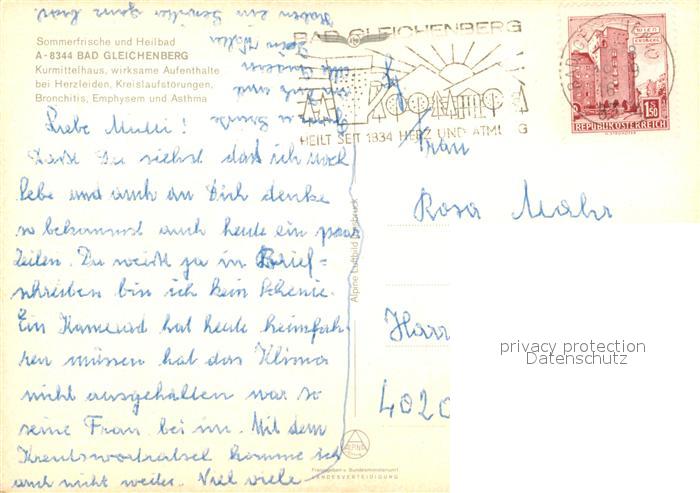 Sommerfrische und Heilbad
A - 8344 BAD GLEICHENBERG
Kurmittelhaus, wirksame Aufenthalte
bei Herzleiden, Kreislaufstörungen,
Bronchitis, Emphysem und Asthma
BAD GLEICHENBERG
HEILT SEIT 1834 HERZ UND ATMU G
WIEN
ERDBERG
1.50
REPUBLIK ÖSTERREICH
Liebe Mutti!
Du siehst das ich noch
lebe und auch an Dich denke
so bekommst auch heute ein paar
Zeilen. Du weißt ja in Brief-
schreiben bin ich kein Schenie.
Ein Kamerad hat heute heimfah-
ren müssen hat das Klima
nicht ausgehalten war so
seine Frau bei im. Mit dem
Kreutzworträtsel komme ich
auch nicht weiter. Viel viele
Frau
Rosa Mahr
Harr
4020
Alpine Luftbild Innsbruck
Freigegeben v. Bundesministerium f.
LANDESVERTEIDIGUNG
privacy protection
Datenschutz